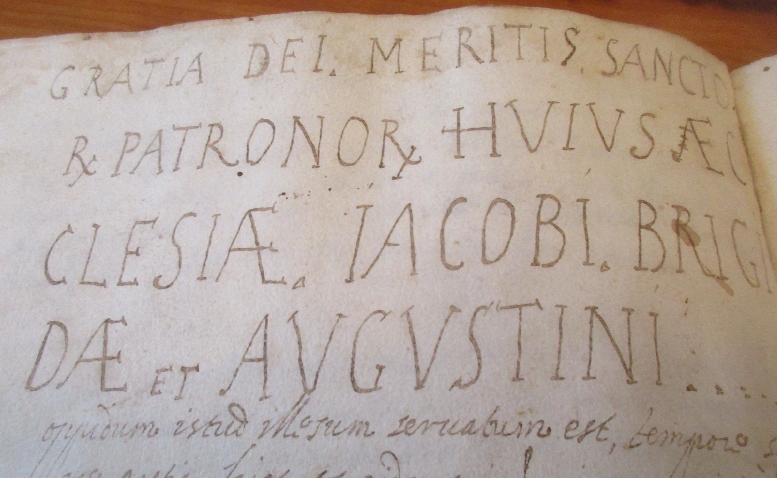 GRATIA DEI. MERITIS. SANCTO
℞ PATRONO℞ HVIVS ÆC
CLESIÆ. IACOBI. BRIGI
DÆ ET AVGVSTINI....
oppidum istud illæsum seruatum est, tempore